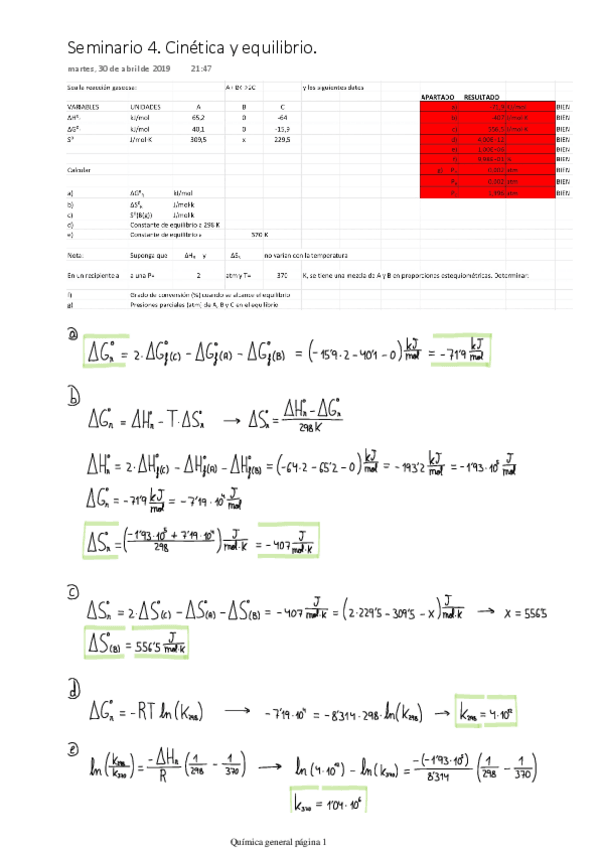 Seminario 4. Cinética y equilibrio.
martes, 30 de abril de 2019 21:47
Sea la reacción gaseosa: y los siguientes datos
APARTADO RESULTADO
VARIABLES UNIDADES A B C a) BIEN
ΔHº kJ/mol 65,2 0 -64 b) BIEN
ΔGº kJ/mol 40,1 0 -15,9 c) BIEN
Sº J/mol·K 309,5 x 229,5 d) BIEN
e) BIEN
f) BIEN
Calcular g) BIEN
BIEN
a) kJ/mol BIEN
b) J/mol·k
c) Sº(B(g)) J/mol·k
d) Constante de equilibrio a 298 K
e) Constante de equilibrio a 370 K
Nota: Suponga que ΔHº y no varían con la temperatura
En un recipiente a a una P= 2 atm y T= 370 K, se tiene una mezcla de A y B en proporciones estequiométricas. Determinar:
f) Grado de conversión (%) cuando se alcance el equilibrio
g) Presiones parciales (atm) de A, B y C en el equilibrio
a
ΔGºₙ = 2·ΔGº_f(C) − ΔGº_f(A) − ΔGº_f(B) = (−15'9·2 − 40'1 − 0) kJ/mol = −71'9 kJ/mol
b
ΔGºₙ = ΔHºₙ − T·ΔSºₙ → ΔSºₙ = (ΔHºₙ − ΔGºₙ)/298K
ΔHºₙ = 2·ΔHº_f(C) − ΔHº_f(A) − ΔHº_f(B) = (−64·2 − 65'2 − 0) kJ/mol = −193'2 kJ/mol = −1'93·10⁵ J/mol
ΔGºₙ = −71'9 kJ/mol = −7'19·10⁴ J/mol
ΔSºₙ = ((−1'93·10⁵ + 7'19·10⁴)/298) J/mol·K = −407 J/mol·K
c
ΔSºₙ = 2·ΔSº(C) − ΔSº(A) − ΔSº(B) = −407 J/mol·K = (2·229'5 − 309'5 − x) J/mol·K → x = 556'5
ΔSº(B) = 556'5 J/mol·K
d
ΔGºₙ = −RT ln(K₂₉₈) → −7'19·10⁴ = −8'314·298·ln(k₂₉₈) → k₂₉₈ = 4·10¹²
e
ln(k₂₉₈/k₃₇₀) = −ΔHₙ/R (1/298 − 1/370) → ln(4·10¹²) − ln(k₃₇₀) = −(−1'93·10⁵)/8'314 (1/298 − 1/370)
k₃₇₀ = 1'04·10⁶
Química general página 1